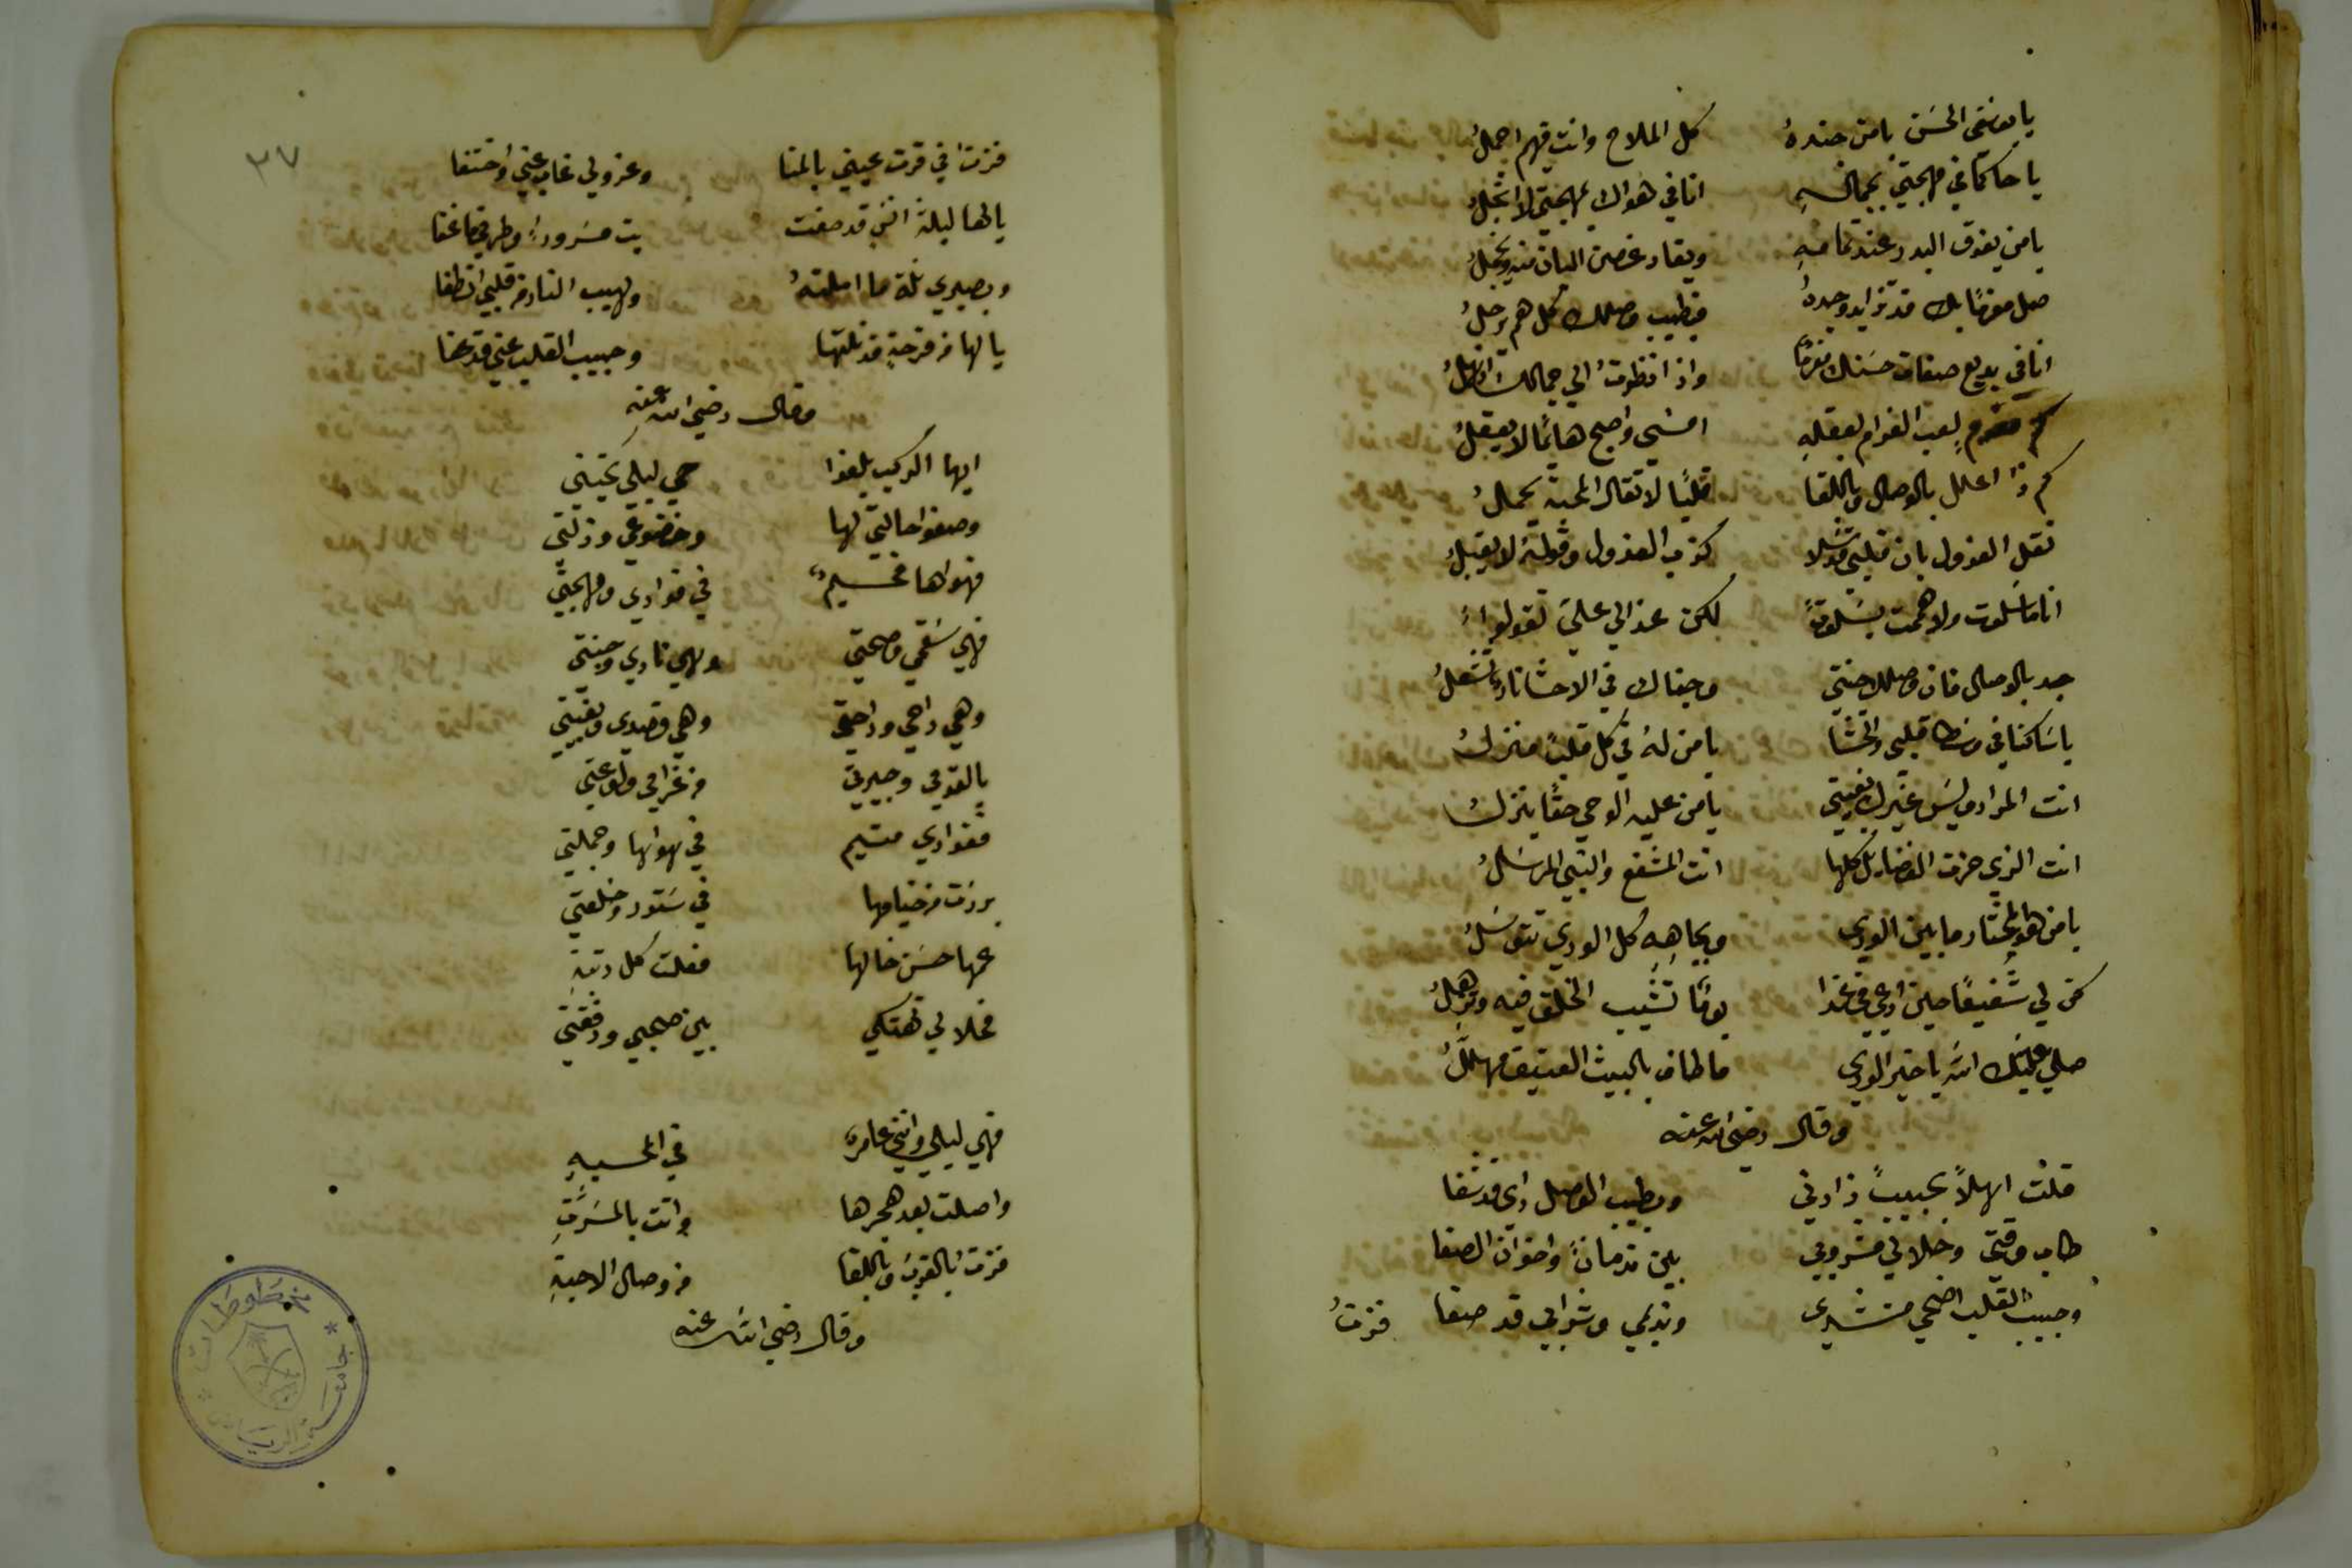 يا يوسفي الحسن يا من جنده كل الملاح وانت فيهم اجمل
يا حاكما في مهجتي بجماله انا في هواك بمهجتي لا ابخل
يا من يفوق البدر عند تمامه ويغار غصن البان منه ويخجل
صل مغرمًا بك قد تزايد وجده فبطيب وصلك كل هم يرحل
انا في بديع صفات حسنك مغرمًا واذا نظرت الي جمالك
كم مغرم لعب الغرام بعقله امسي واصبح هايمًا لا يعقل
كم ذا اعلل بالوصال وباللقا قلبًا لاثقال المحبة يحمل
نقل العذول بان قلبي قد سلا كذب العذول وقوله لا يقبل
انا ما سلوت ولا هممت بسلوة لكن عذالي علي تقولوا
جد بالوصال فان وصلك جنتي وجفاك في الاحشا نار تشعل
يا ساكنا في وسط قلبي والحشا يا من له في كل قلب منزل
انت المراد وليس غيرك بغيتي يا من عليه الوحي حقًا ينزل
انت الذي حزت الفضايل كلها انت المشفع والنبي المرسل
يا من هو المختار ما بين الوري وبجاهه كل الوري تتوسل
كن لي شفيعًا حين ادعي في غدا يومًا تشيب الخلق فيه وتذهل
صلي عليك الله يا خير الوري ما طاف بالبيت العتيق مهلل
وقال رضي الله عنه
قلت اهلاً بحبيب زارني وبطيب الوصل داي قد شفا
طاب وقتي وحلا لي مشروبي بين ندمان واخوان الصفا
وحبيب القلب اضحي منشدي ونديمي وشرابي قد صفا فزت
٣٧
فزت اذ قرت عيني بالمنا وعذولي غاب عني واختفا
يا لها ليلة انس قد صفت بت مسرورا وطرفي ما غفا
وبصبري نلت ما املته ولهيب النار من قلبي انطفا
يا لها من فرحة قد نلتها وحبيب القلب عني قد عفا
وقال رضي الله عنه
ايها الركب بلغوا حي ليلي تحيتي
وصفوا حالتي لها وخضوعي وذلتي
فهواها مخيم في فوادي ومهجتي
فهي سقمي وصحتي وهي ناري وجنتي
وهي راحي وراحتي وهي قصدي وبغيتي
يا لقومي وجيرتي من غرامي ولوعتي
ففوادي متيم في هواها وجملتي
برزت من خيامها في ستور وخلعتي
عمها حسن خالها فعلت كل رتبة
فحلا لي تهتكي بين صحبي ورفقتي
فهي ليلي وانني عامر في المحبة
واصلت بعد هجرها واتت بالمسرة
فزت بالقرب وباللقا من وصال الاحبة
وقال رضي الله عنه
مخطوطات
جامعة الرياض